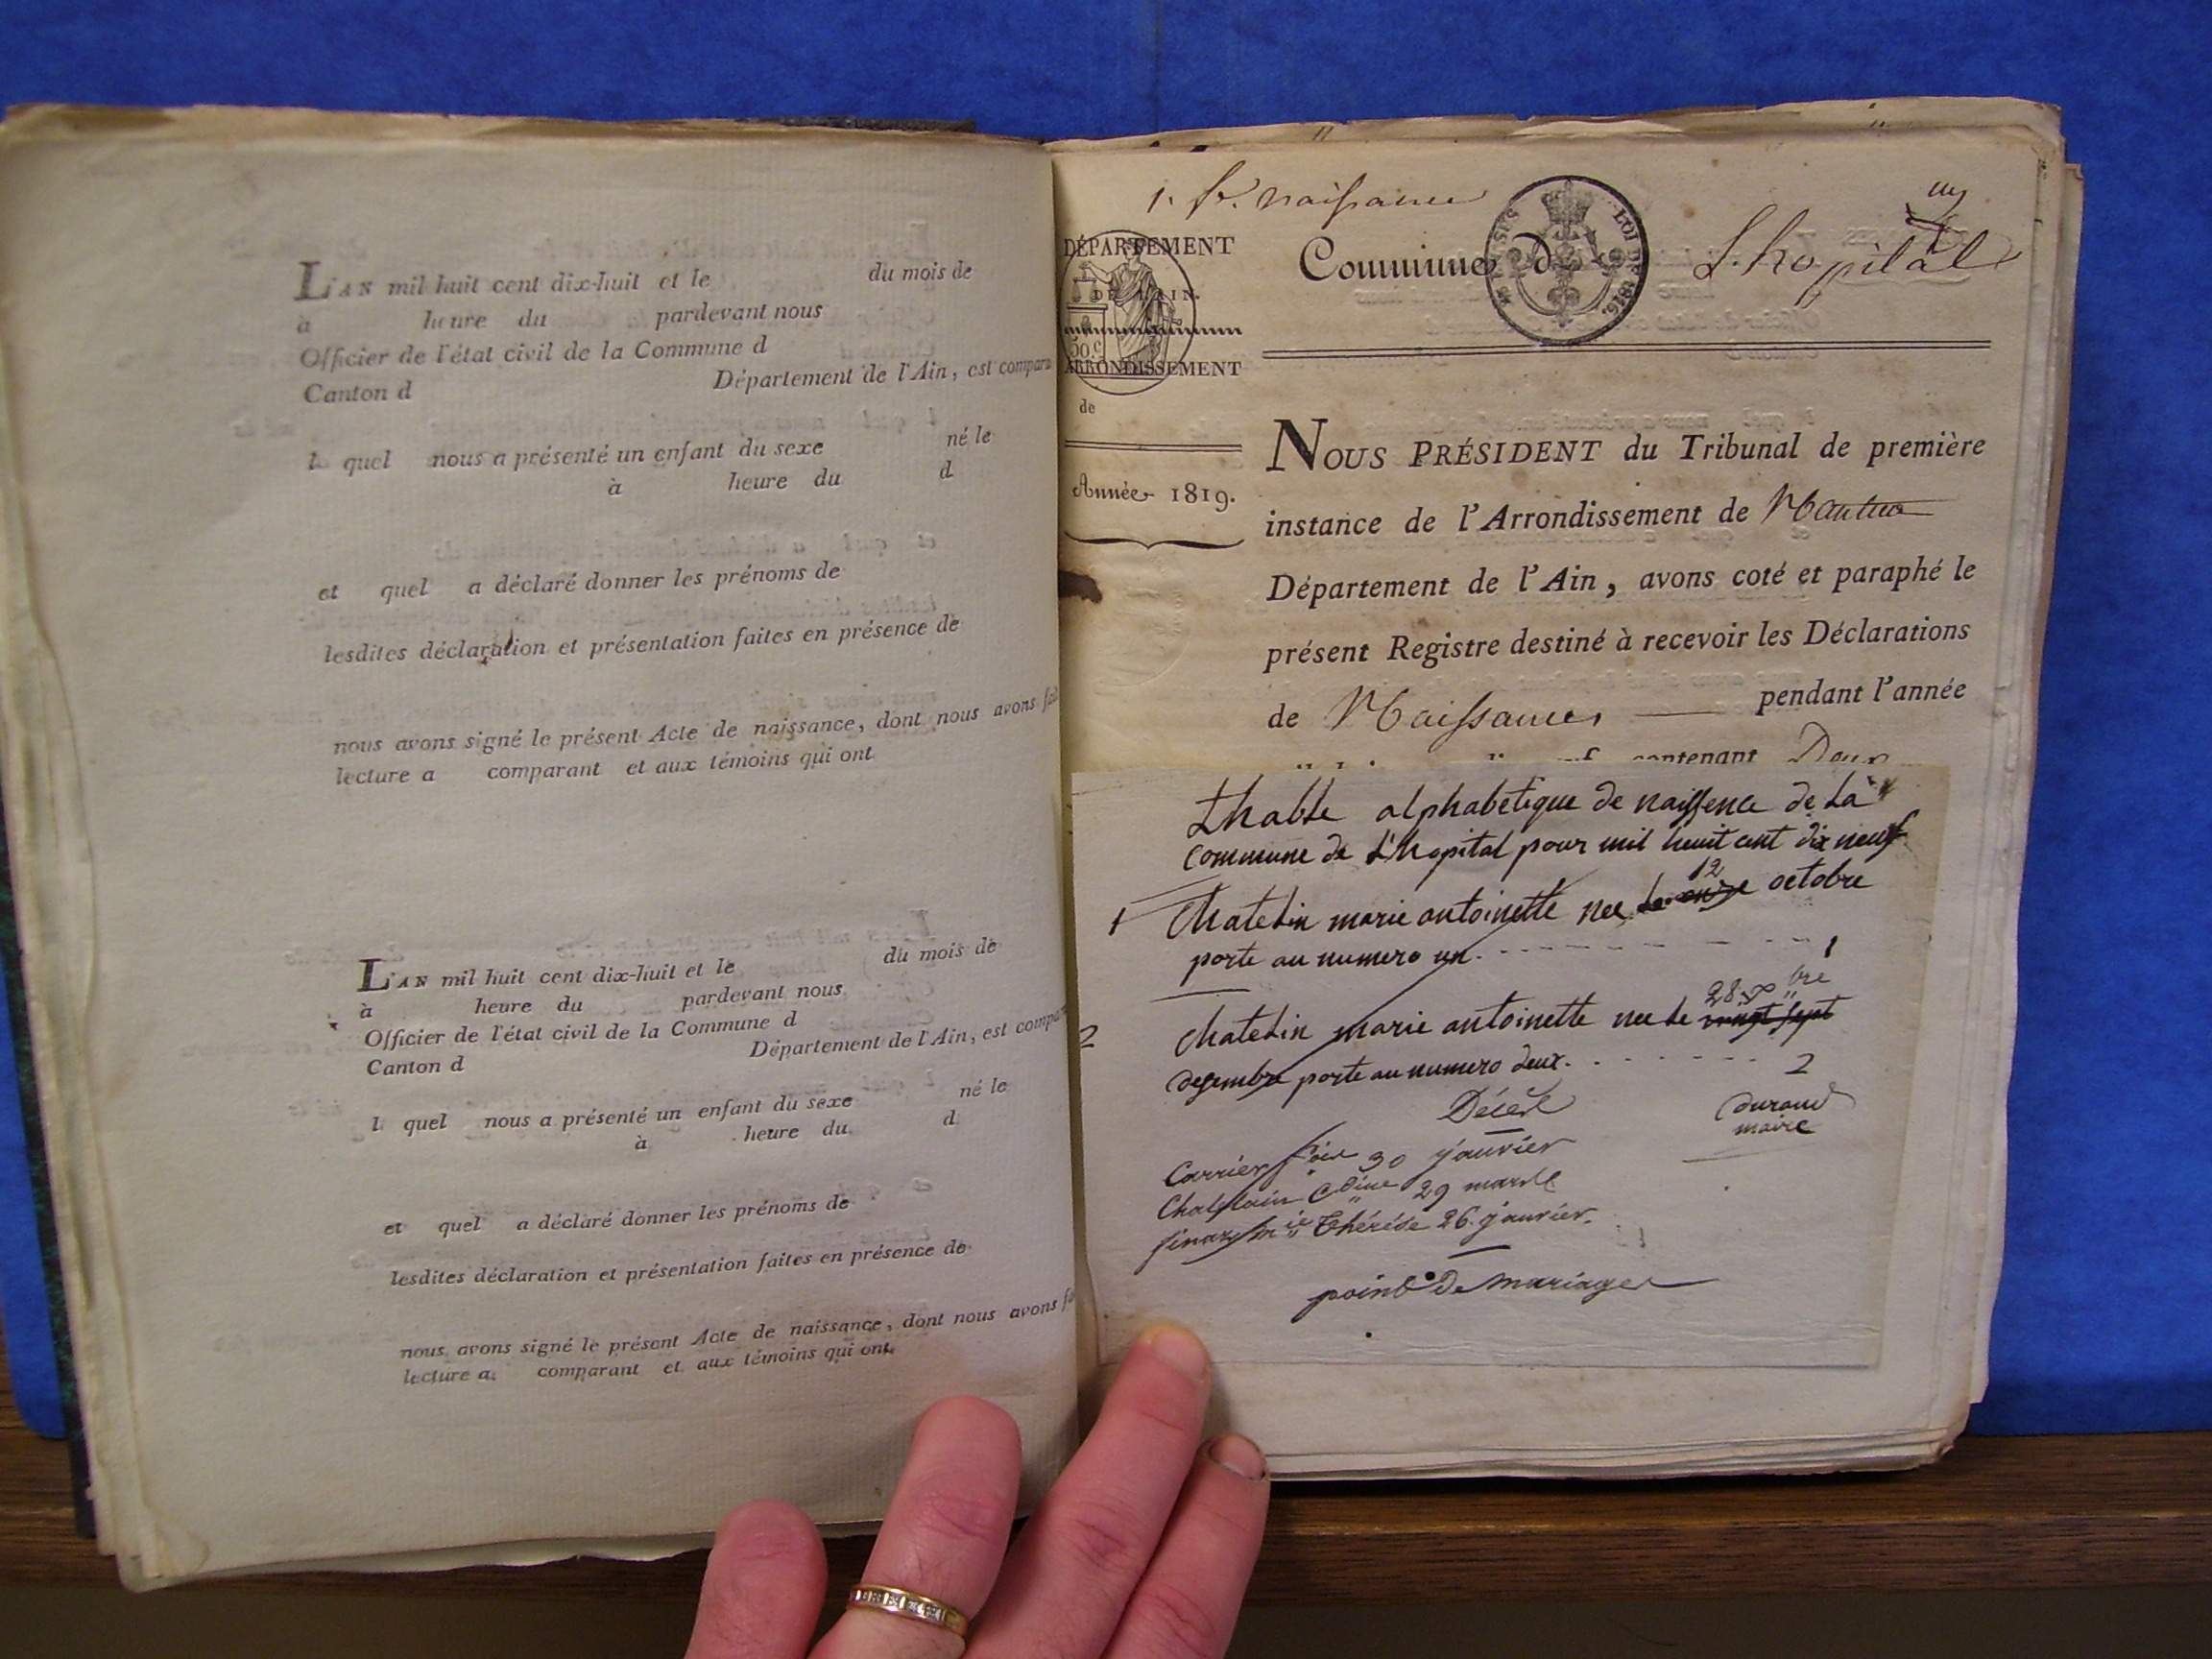 L'AN mil huit cent dix-huit et le du mois de
à heure du pardevant nous
Officier de l'état civil de la Commune d
Canton d Département de l'Ain, est compara
l quel nous a présenté un enfant du sexe né le
à heure du d
et quel a déclaré donner les prénoms de
lesdites déclaration et présentation faites en présence de
nous avons signé le présent Acte de naissance, dont nous avons fai
lecture a comparant et aux témoins qui ont
L'AN mil huit cent dix-huit et le du mois de
à heure du pardevant nous
Officier de l'état civil de la Commune d
Canton d Département de l'Ain, est compar
l quel nous a présenté un enfant du sexe né le
à heure du d
et quel a déclaré donner les prénoms de
lesdites déclaration et présentation faites en présence de
nous avons signé le présent Acte de naissance, dont nous avons fa
lecture a comparant et aux témoins qui ont
1. naissance
DÉPARTEMENT
DE L'AIN.
50.c
ARRONDISSEMENT
de
Année 1819.
Commune d L'hopital
LOI DE 1816.
NOUS PRÉSIDENT du Tribunal de première
instance de l'Arrondissement de Nantua
Département de l'Ain, avons coté et paraphé le
présent Registre destiné à recevoir les Déclarations
de Naissances pendant l'année
contenant Deux
thable alphabetique de naissence de La
commune de L'hopital pour mil huit cent dix neuf
1 Chatelin marie antoinette nee le onze 12 octobre
porte au numero un. 1
2 Chatelin marie antoinette nee le vingt sept 28 bre
desembre porte au numero deux. 2
Décès
durand
maire
Carrier 30 janvier
Chatelain 29 mars
mie Thérèse 26 janvier.
point de mariages